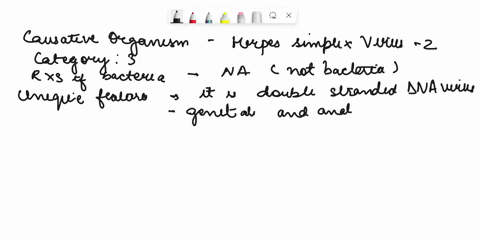 Causative Organism - Herpes simplex Virus -2
Category: 3
RXS if bacteria → NA (not bacteria)
Unique features → it is double stranded DNA virus
- genital and anal